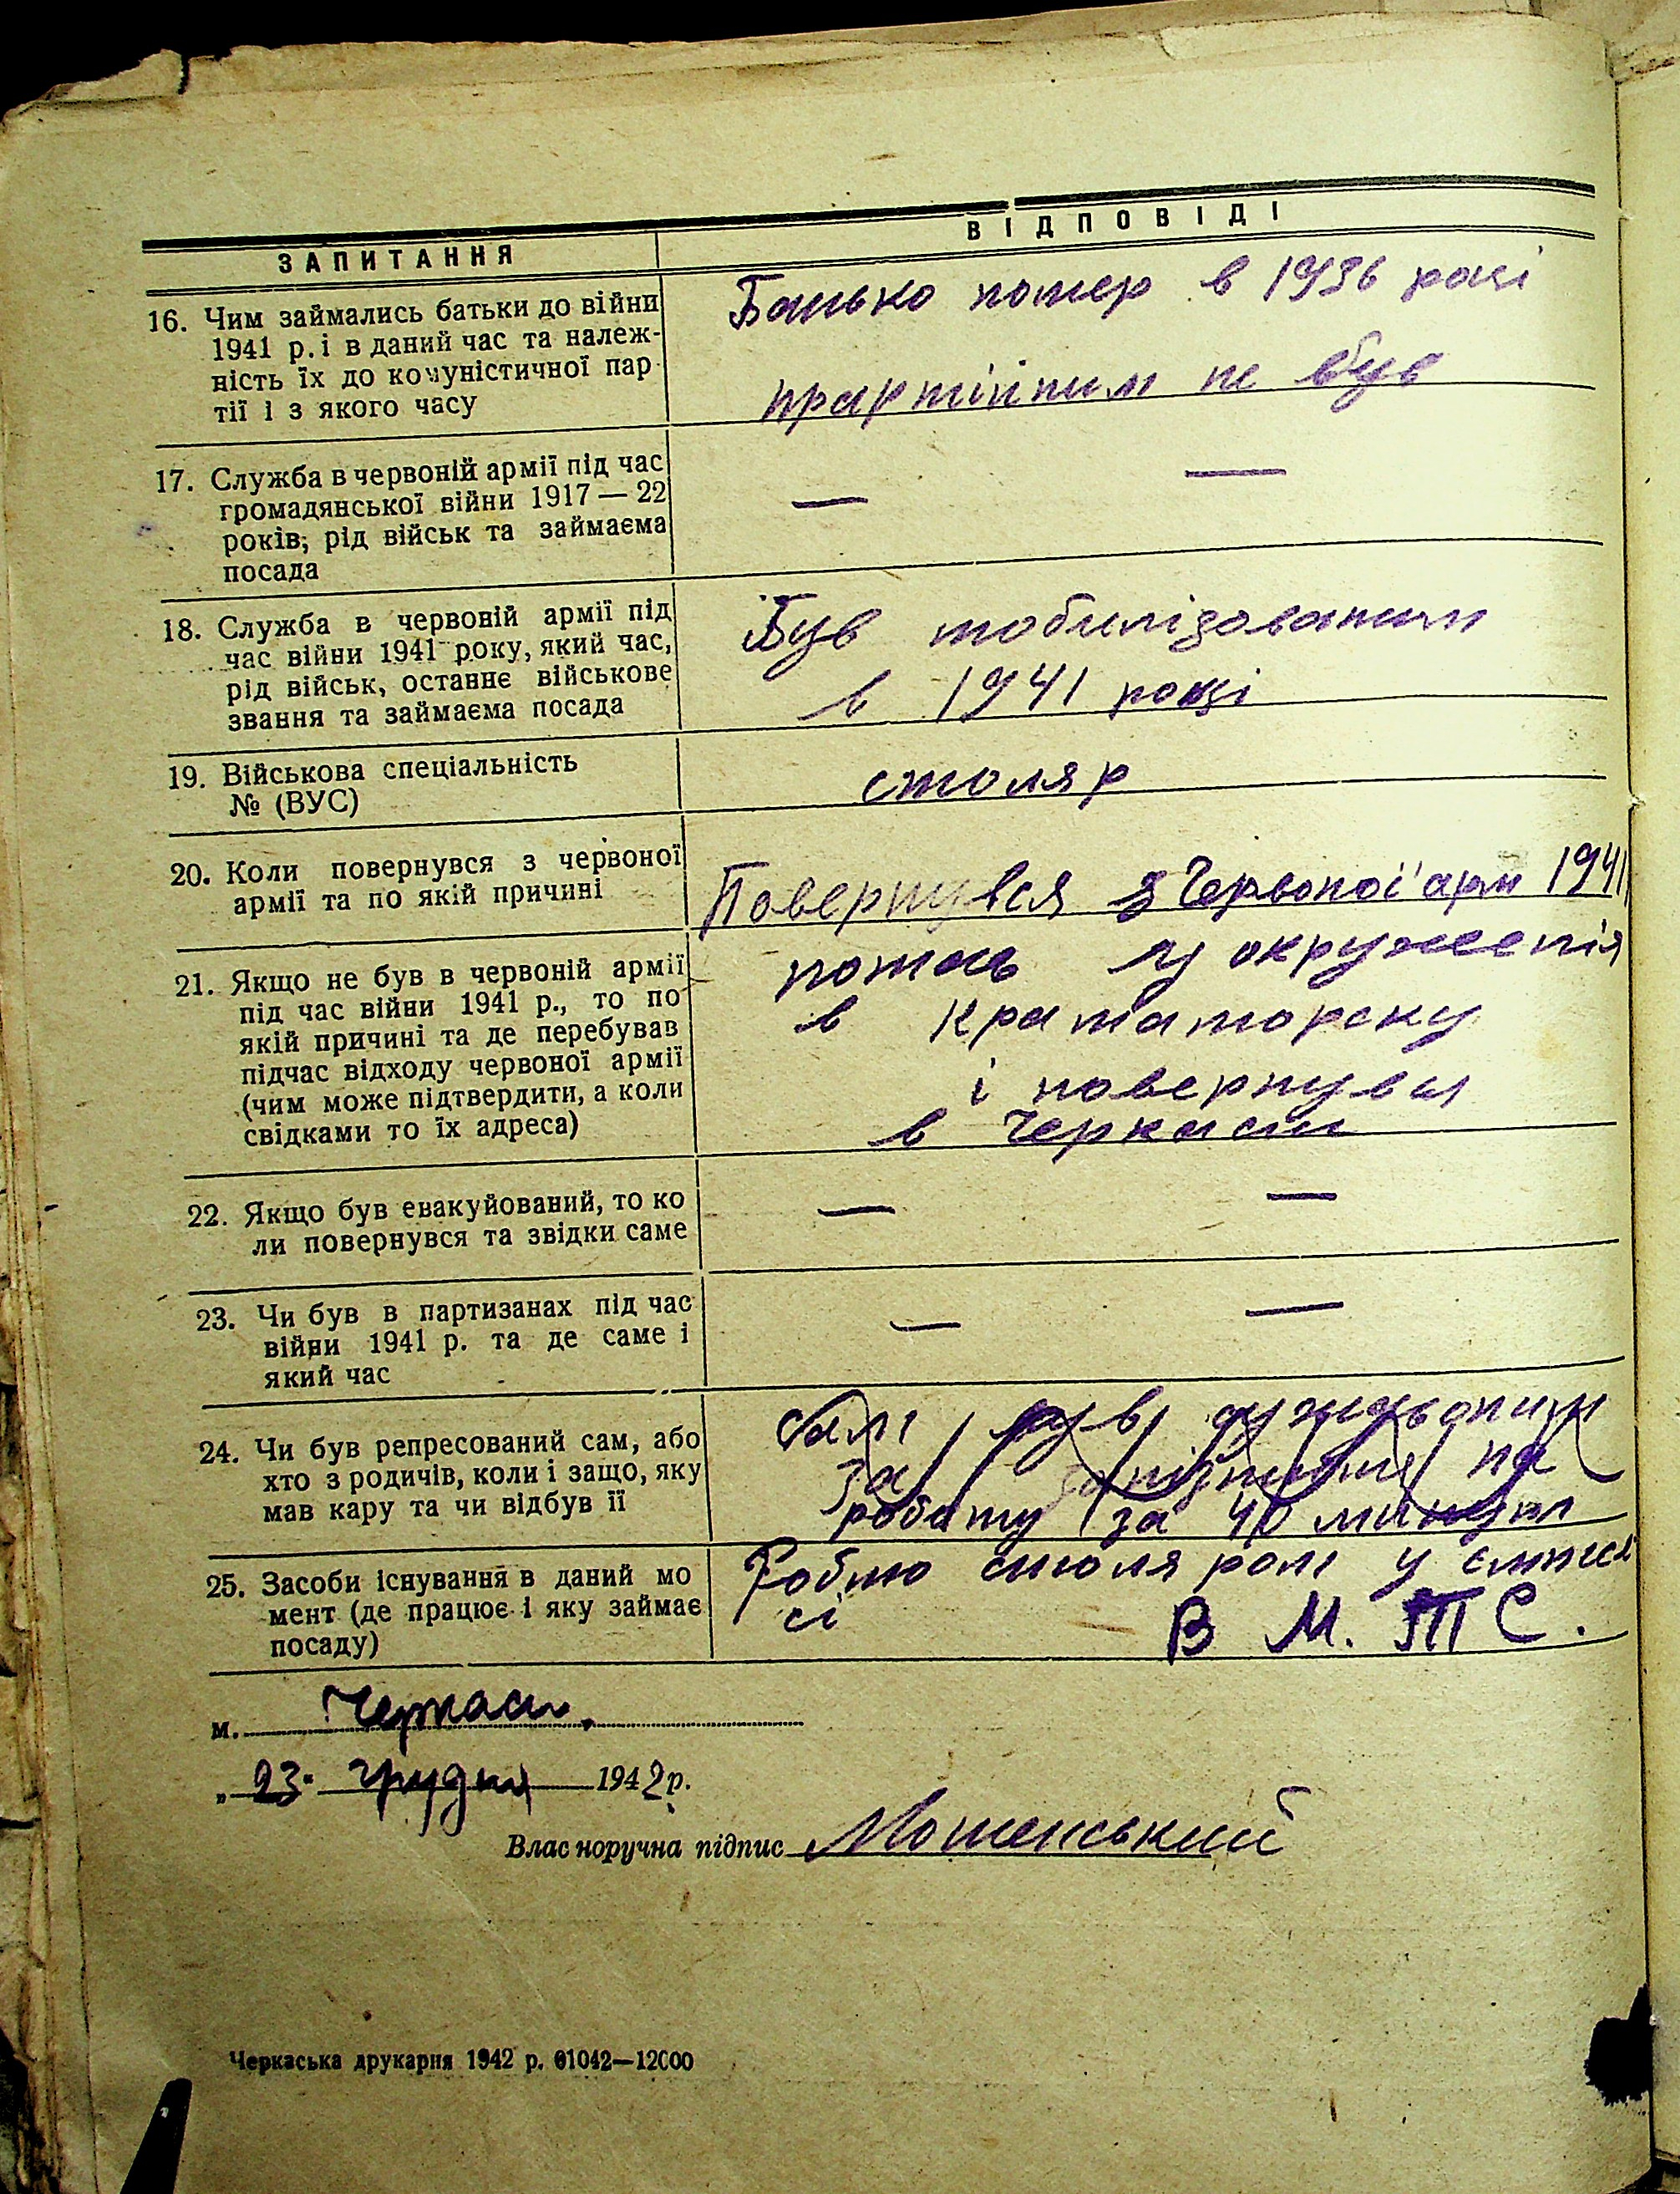 ЗАПИТАННЯ
ВІДПОВІДІ
16. Чим займались батьки до війни
1941 р. і в даний час та належ-
ність їх до комуністичної пар-
тії і з якого часу
Батько помер в 1936 році
прартійним не був
17. Служба в червоній армії під час
громадянської війни 1917 — 22
років, рід військ та займаєма
посада
— —
18. Служба в червоній армії під
час війни 1941 року, який час,
рід військ, останнє військове
звання та займаєма посада
Був мобилізованим
в 1941 році
19. Військова спеціальність
№ (ВУС)
столяр
20. Коли повернувся з червоної
армії та по якій причині
Повернувся з Червоної арм 1941
21. Якщо не був в червоній армії
під час війни 1941 р., то по
якій причині та де перебував
підчас відходу червоної армії
(чим може підтвердити, а коли
свідками то їх адреса)
попав у окруженія
в Краматорску
і повернувся
в Черкаси
22. Якщо був евакуйований, то ко
ли повернувся та звідки саме
— —
23. Чи був в партизанах під час
війни 1941 р. та де саме і
який час
— —
24. Чи був репресований сам, або
хто з родичів, коли і защо, яку
мав кару та чи відбув її
сам був
за запізнення на
работу за 40 минут
25. Засоби існування в даний мо
мент (де працює і яку займає
посаду)
Роблю столяром у
сі В М. Т С.
м. Черкаси.
„ 23 " грудня 1942 р.
Влас норучна підпис Мошенський
Черкаська друкарня 1942 р. 01042—12000